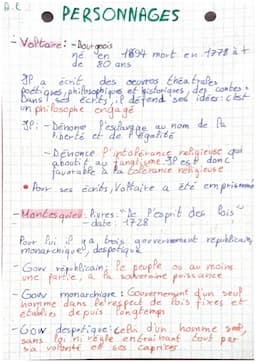 A.L
• PERSONNAGES •
- Voltaire: - Bourgeois
né en 1694 mort en 1778 à +
de 80 ans
IP a écrit des oeuvres théatrales
poétiques, philosophiques et historiques, des contes.
Dans ses écrits, il défend ses idées: c'est
un philosophe engagé
IP: - Dénonce l'esclavage au nom de la
liberté et de l'égalité
- DÉNONCE l'intolérance religieuse qui
aboutit au fanatisme. IP est donc
favorable à la tolérance religieuse
• Pour ses écrits, Voltaire a été emprisonné
- Montesquieu: livres: "De l'esprit des lois"
- date: 1728
Pour lui il y a trois gouvernement républicain,
monarchique, despotique
- Gouv républicain: le peuple ou au moins
une partie, a la souveraine puissance
- Gouv monarchique: Gouvernement d'un seul
homme dans le respect de lois fixes et
établies depuis longtemps
- Gouv despotique: celui d'un homme seul,
sans loi ni règle entraînant tout par
sa volonté et ses caprices